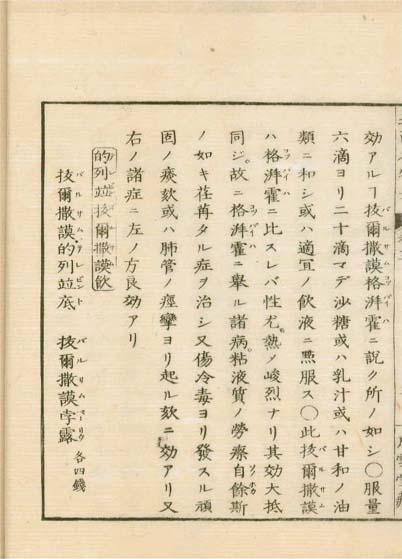 効アルヿ抜爾撒謨格湃霍ニ説ク所ノ如シ〇服量
六滴ヨリ二十滴マデ沙糖或ハ乳汁或ハ甘和ノ油
類ニ和シ或ハ適宜ノ飲液ニ点服ス〇此抜爾撒謨
ハ格湃霍ニ比スレバ性尤熱〆峻烈ナリ其効大抵
同ジ故ニ格湃霍ニ挙ル諸病粘液質ノ労療自余斯
ノ如キ荏苒タル症ヲ治シ又傷冷毒ヨリ発スル頑
固ノ痰欬或ハ肺管ノ痙攣ヨリ起ル欬ニ効アリ又
右ノ諸症ニ左ノ方良効アリ
的列並抜爾撒謨飲
抜爾撒謨的列並底 抜爾撒謨孛露 各四銭